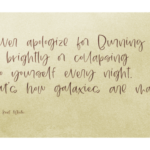 ver apologize for burning
brightly or collapsing
to yourself every night.
at's how galaxies are ma